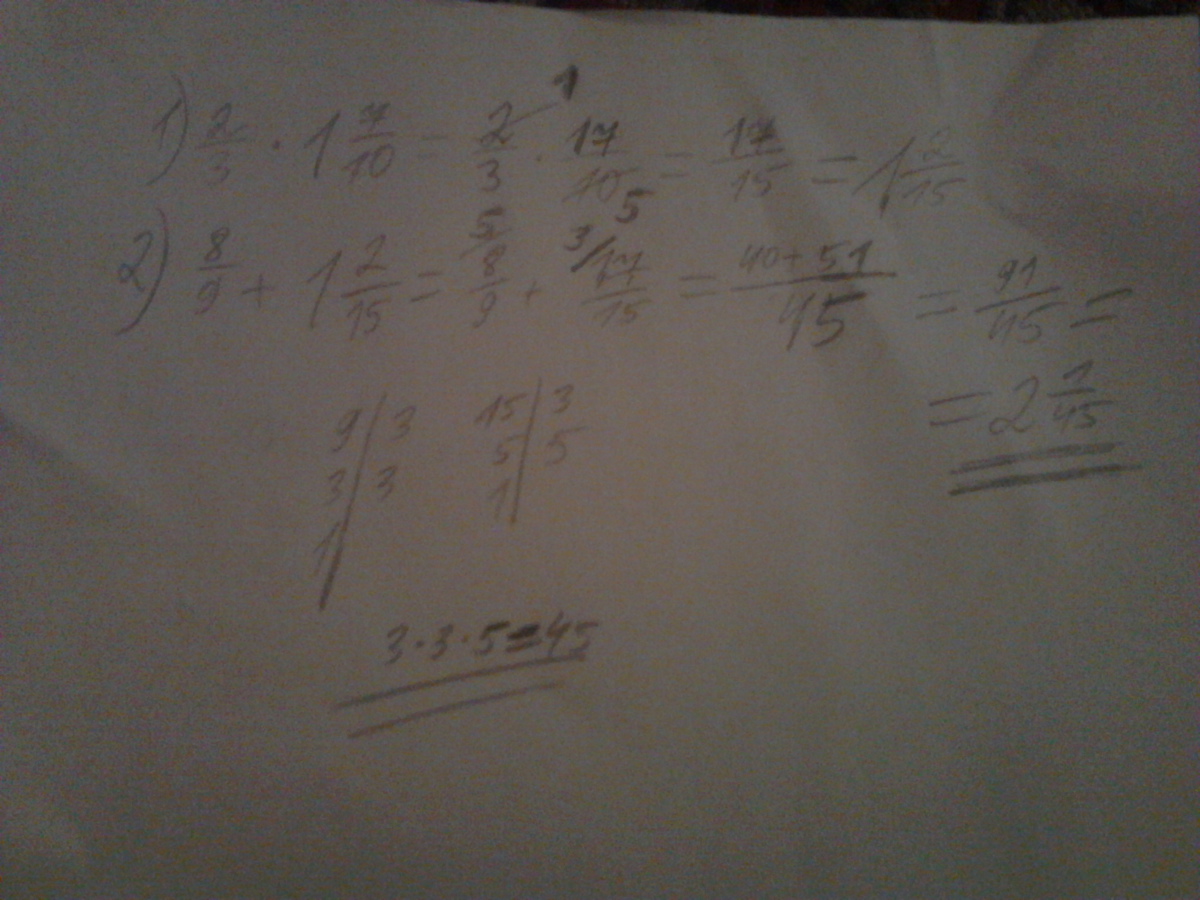 1) 2/3 · 1 7/10 = 2/3 1 · 17/10 5 = 17/15 = 1 2/15
2) 8/9 + 1 2/15 = 5 8/9 + 3/ 17/15 = 40+51/45 = 91/45 =
= 2 1/45
9 | 3 15 | 3
3 | 3 5 | 5
1 | 1 |
3·3·5=45